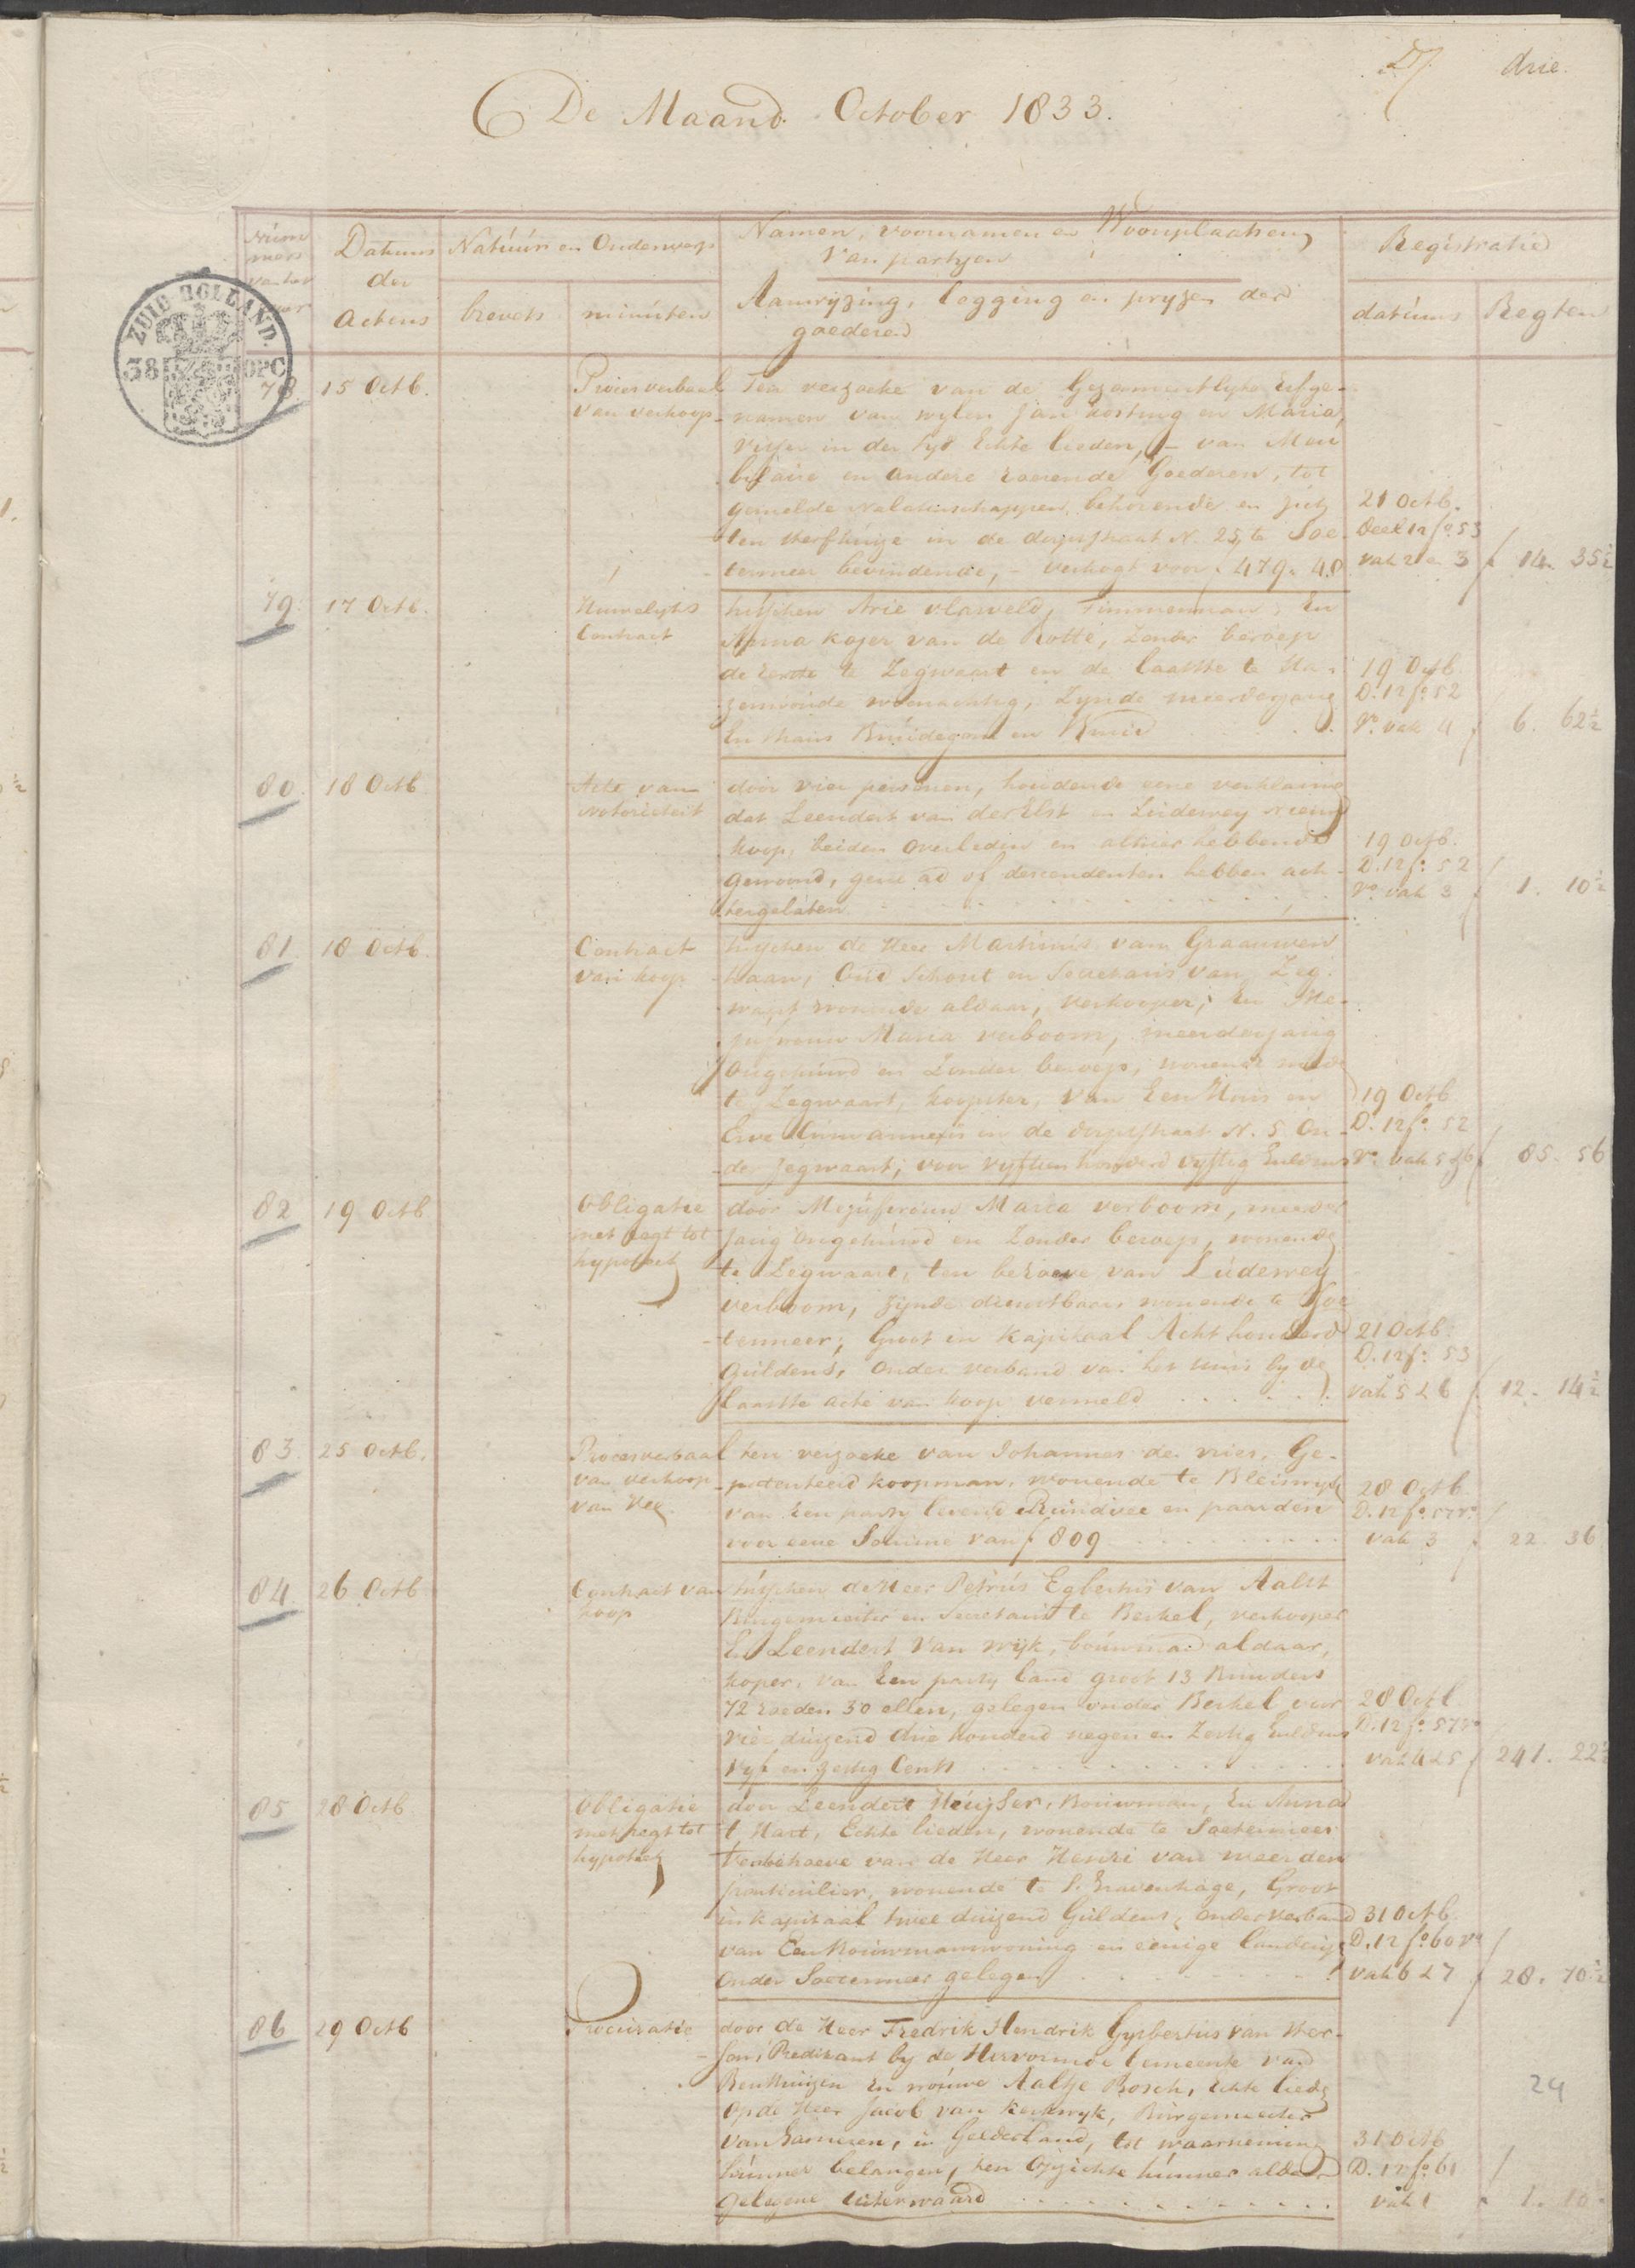 drie.
De Maand October 1833.
Num
mers
van het
Datums
der
Actens
Natuur en Onderwerp
brevets
minuten
Namen, voornamen en Woonplaatsen
van partyen
Aanwijzing, legging en pryzen der
goederen
Registratie
datums
Regten
ZUID HOLLAND.
38 OPC
78 15 Octb.
Procesverbaal
van verkoop
Ten verzoeke van de Gezamentlyke Erfge-
namen van wylen Jan Oosting en Maria
Visser in der tyd Echte lieden, - van Meu
bilaire en andere roerende Goederen, tot
gemelde Nalatenschappen behorende en zich
ten sterfhuize in de dorpstraat N. 25, te Soe-
termeer bevindende, - verkogt voor f 479. 48
21 Octb.
Deel 12 fo. 53
vak 2 en 3 f 14. 35½
79 17 Octb.
Huwelyks
Contract
tusschen Arie Vlasveld, Timmerman; En
Anna Kojer van de Rotte, Zonder beroep
de eerste te Zegwaart en de laatste te Ha-
zerswoude woonachtig, Zynde meerderjarig
En thans Bruidegom en Bruid
19 Octb
D. 12 fo. 52
Vo. vak 4 f 6. 62½
80 18 Octb
Acte van
Notoriteit
door vier personen, houdende eene verklaring
dat Leendert van der Elst en Ludewey Nieuw
koop, beiden overleden en alhier hebbende
gewoond, geene ad of descendenten hebben ach-
tergelaten
19 Octb.
D. 12 fo. 52
Vo. vak 3 f 1. 10½
81 18 Octb.
Contract
van koop
tusschen de Heer Martinus van Graauwen
haan, Oud Schout en Secretaris van Zeg-
waart wonende aldaar, Verkooper; En Me-
jufvrouw Maria verboom, meerderjarig
Ongehuwd en Zonder beroep, wonende mede
te Zegwaart, koopster, van Een Huis en
Erve Cum annexis in de dorpsstraat N. 5 On-
der Zegwaart, voor vyftien honderd vyftig Guldens
19 Octb
D. 12 fo. 52
Vo. vak 5 & 6 f 85. 56
82 19 Octb
Obligatie
met regt tot
hypotheek
door Mejufvrouw Maria verboom, meerder
jarig Ongehuwd en Zonder beroep, wonende
te Zegwaart, ten behoeve van Ludewey
verboom, zynde dienstbaar wonende te Zoe
termeer; Groot in Kapitaal Acht honderd
Guldens, onder verband van het huis by de
Laatste acte van koop vermeld
21 Octb
D. 12 fo. 53
vak 5 & 6 f 12. 14½
83 25 Octb.
Procesverbaal
van verkoop
van Vee
ten verzoeke van Johannes de vries, Ge-
patenteerd koopman, wonende te Bleiswyk
van Een party levend Rundvee en paarden
voor eene Somme van f 809
28 Octb
D. 12 fo. 57 ro
vak 3 f 22. 36
84 26 Octb
Contract van
koop
tusschen de Heer Petrus Egbertus van Aalst
Burgemeester en Secretaris te Berkel, verkooper
En Leendert Van Wijk, bouwman aldaar,
koper, van Een party land groot 13 Bunders
72 roeden 30 ellen, gelegen onder Berkel voor
vier duizend drie honderd negen en Zestig Guldens
vyf en zestig Cents
28 Octb
D. 12 fo. 57 vo
vak 4 & 5 f 241. 22½
85 28 Octb
Obligatie
met regt tot
hypotheek
door Leendert Heuyser, Bouwman, En Anna
t Hart, Echte lieden, wonende te Soetermeer
Tenbehoeve van de Heer Henri van meerden
particulier, wonende te S. Gravenhage, Groot
in kapitaal twee duizend Guldens, onder verband
van Een Bouwmanswoning en eenige landerijen
onder Soetermeer gelegen
31 Octb
D. 12 fo 60 vo
vak 6 & 7 f 28. 70½
86 29 Octb
Procuratie
door de Heer Fredrik Hendrik Gysbertus van Iter-
son, Predikant by de Hervormde Gemeente van
Benthuizen En vrouwe Aaltje Bosch, Echte lieden
op de Heer Jacob van Kerkwyk, Burgemeester
van Gameren, in Gelderland, tot waarneming
hunner belangen, ten Opzichte hunner aldaar
gelegene uiterwaard
31 Octb
D. 12 fo 61
vak 1 f 1. 10
24